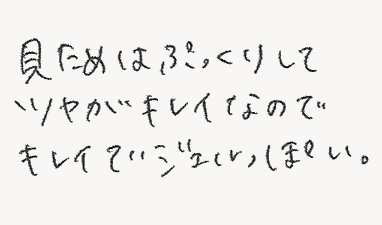 見ためはぷっくりして
ツヤがキレイなので
キレイでジェルっぽい。